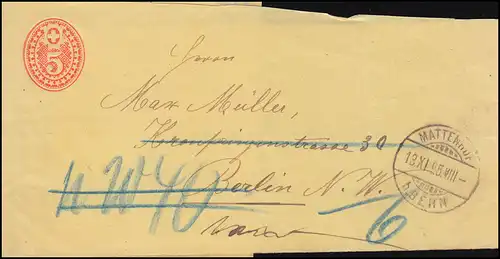 5
Herrn
Max Müller,
Kronprinzenstrasse 30
Berlin N.W.
N W 40
6
MATTENHOF
13.XI.95.VIII-
b. BERN